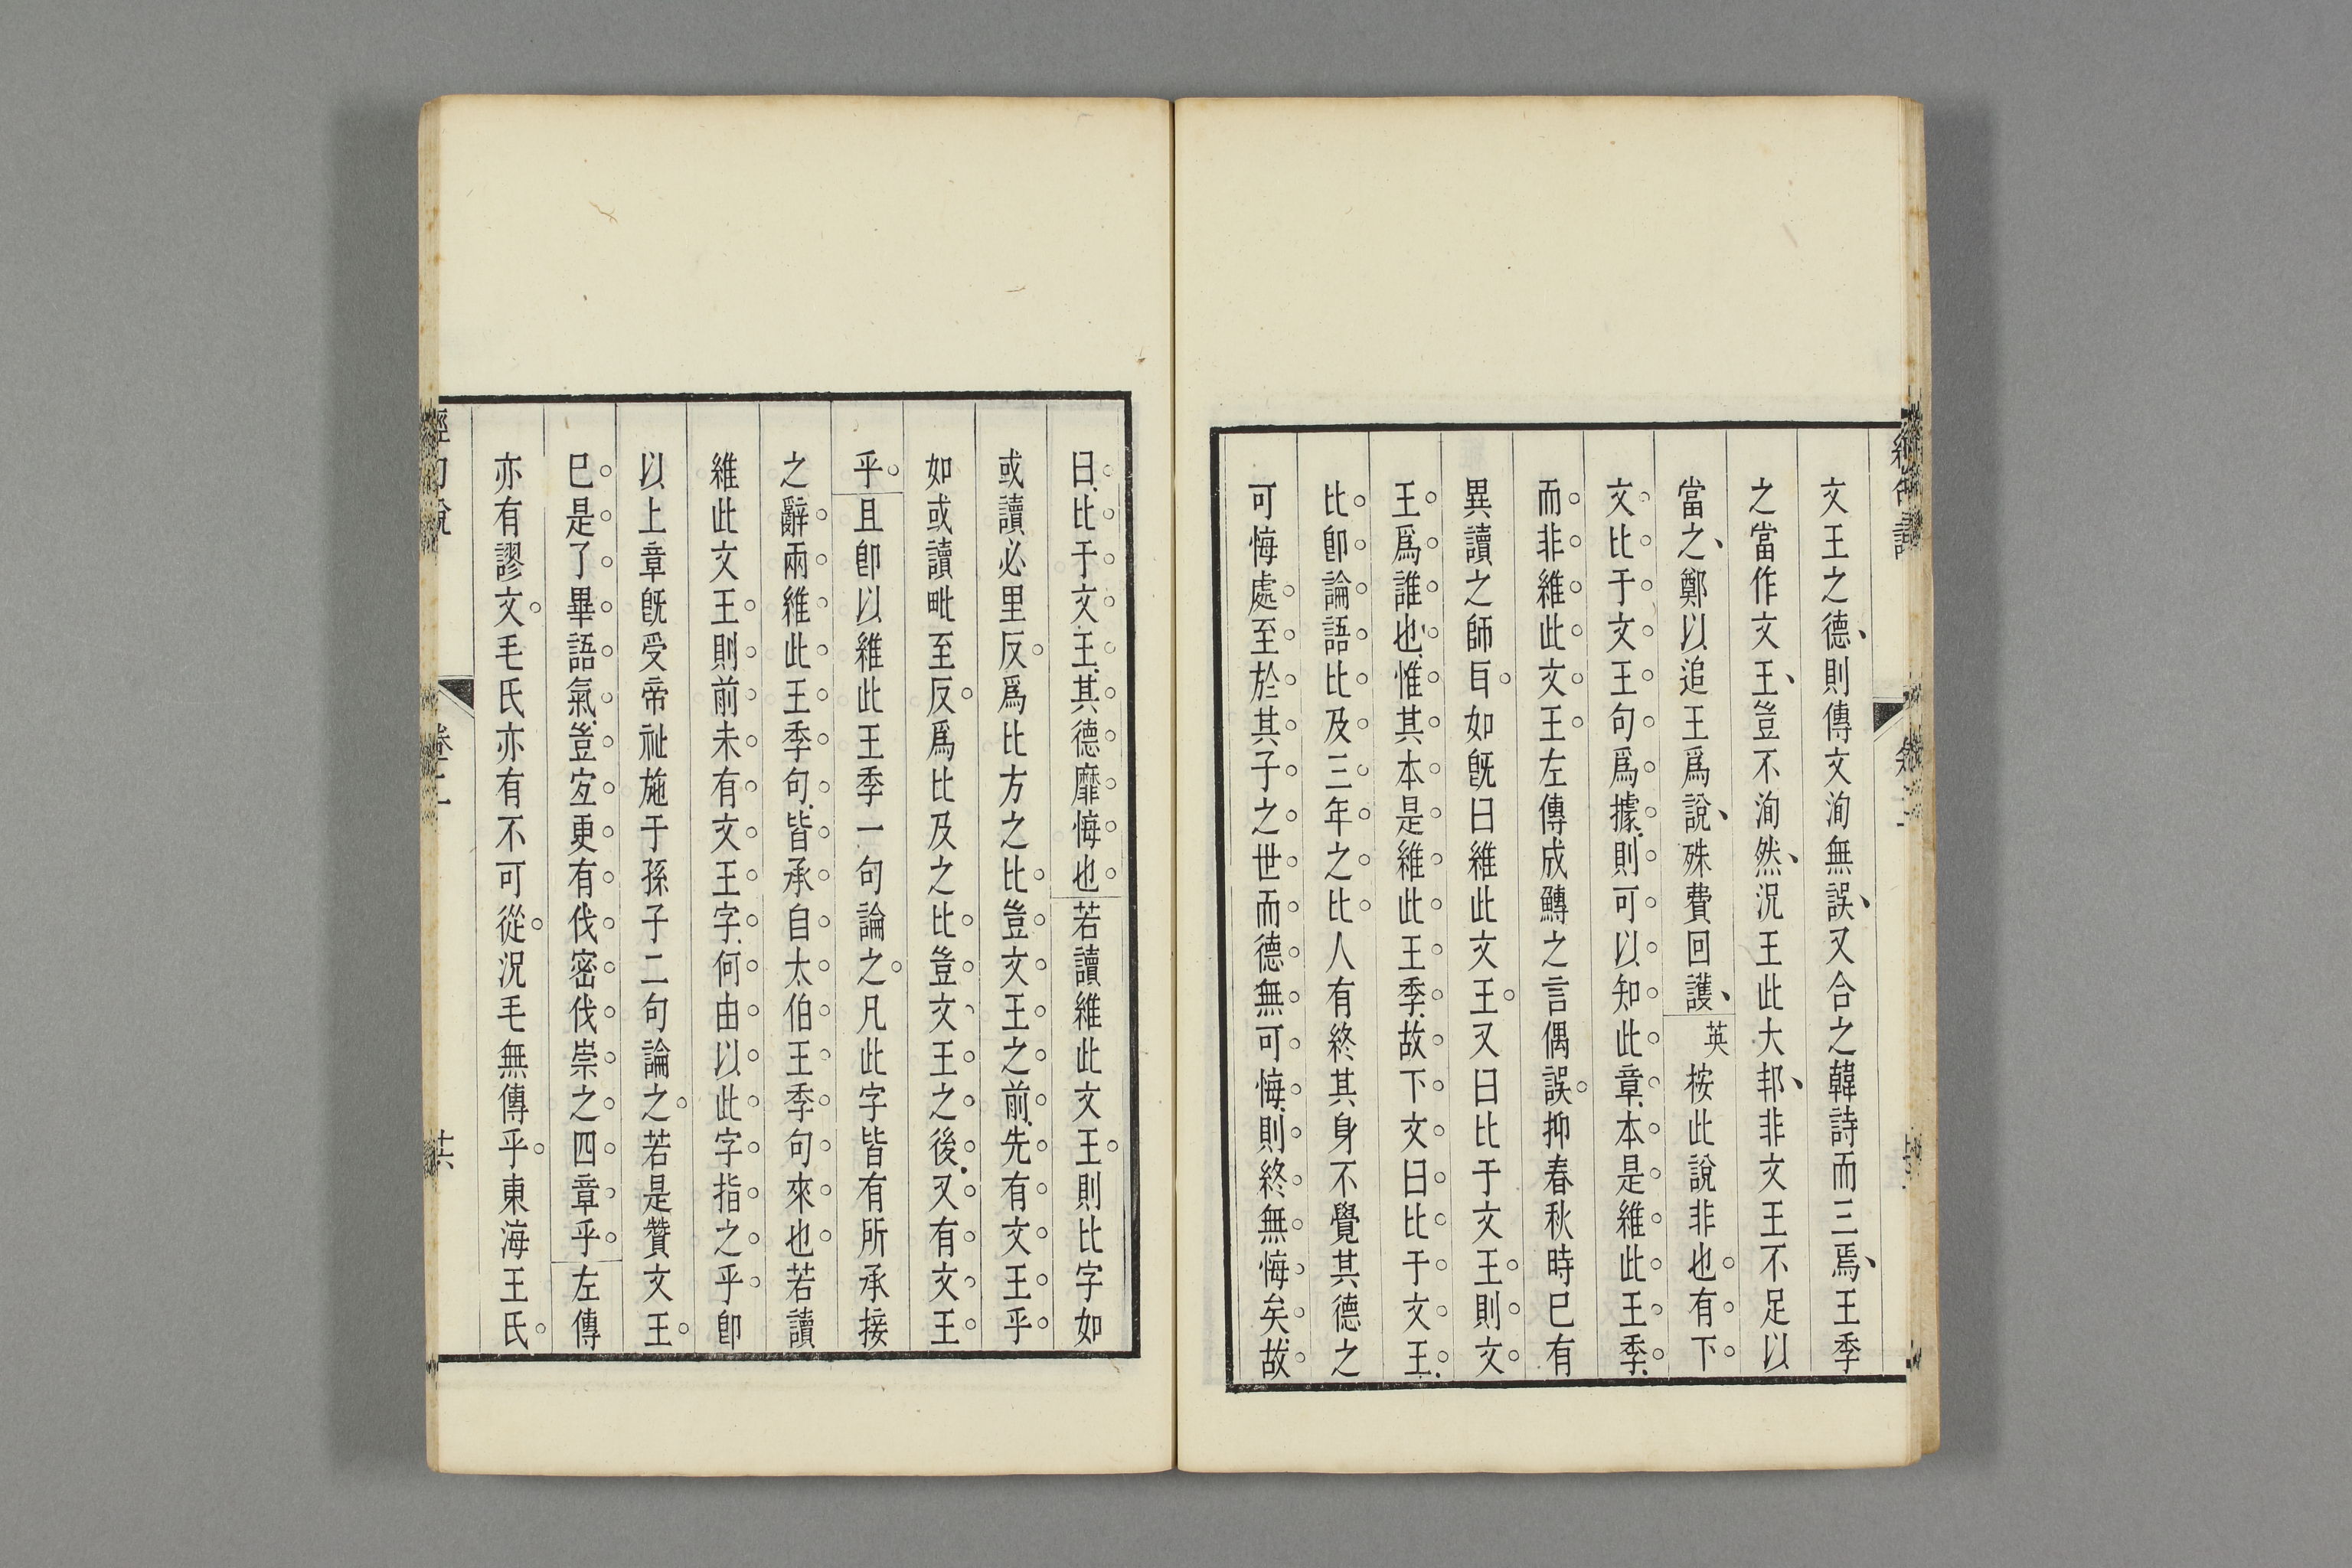 文王之德則傳文洵無誤又合之韓詩而三焉王季
之當作文王豈不洵然況王此大邦非文王不足以
當之鄭以追王爲說殊費回護英按此說非也有下
文比于文王句爲據則可以知此章本是維此王季
而非維此文王左傳成鱄之言偶誤抑春秋時已有
異讀之師㠯如旣曰維此文王又曰比于文王則文
王爲誰也惟其本是維此王季故下文曰比于文王
比卽論語比及三年之比人有終其身不覺其德之
可悔處至於其子之世而德無可悔則終無悔矣故
曰比于文王其德靡悔也若讀維此文王則比字如
或讀必里反爲比方之比豈文王之前先有文王乎
如或讀毗至反爲比及之比豈文王之後又有文王
乎且卽以維此王季一句論之凡此字皆有所承接
之辭兩維此王季句皆承自太伯王季句來也若讀
維此文王則前未有文王字何由以此字指之乎卽
以上章旣受帝祉施于孫子二句論之若是贊文王
已是了畢語氣豈宐更有伐密伐崇之四章乎左傳
亦有謬文毛氏亦有不可從況毛無傳乎東海王氏
經句說
卷十